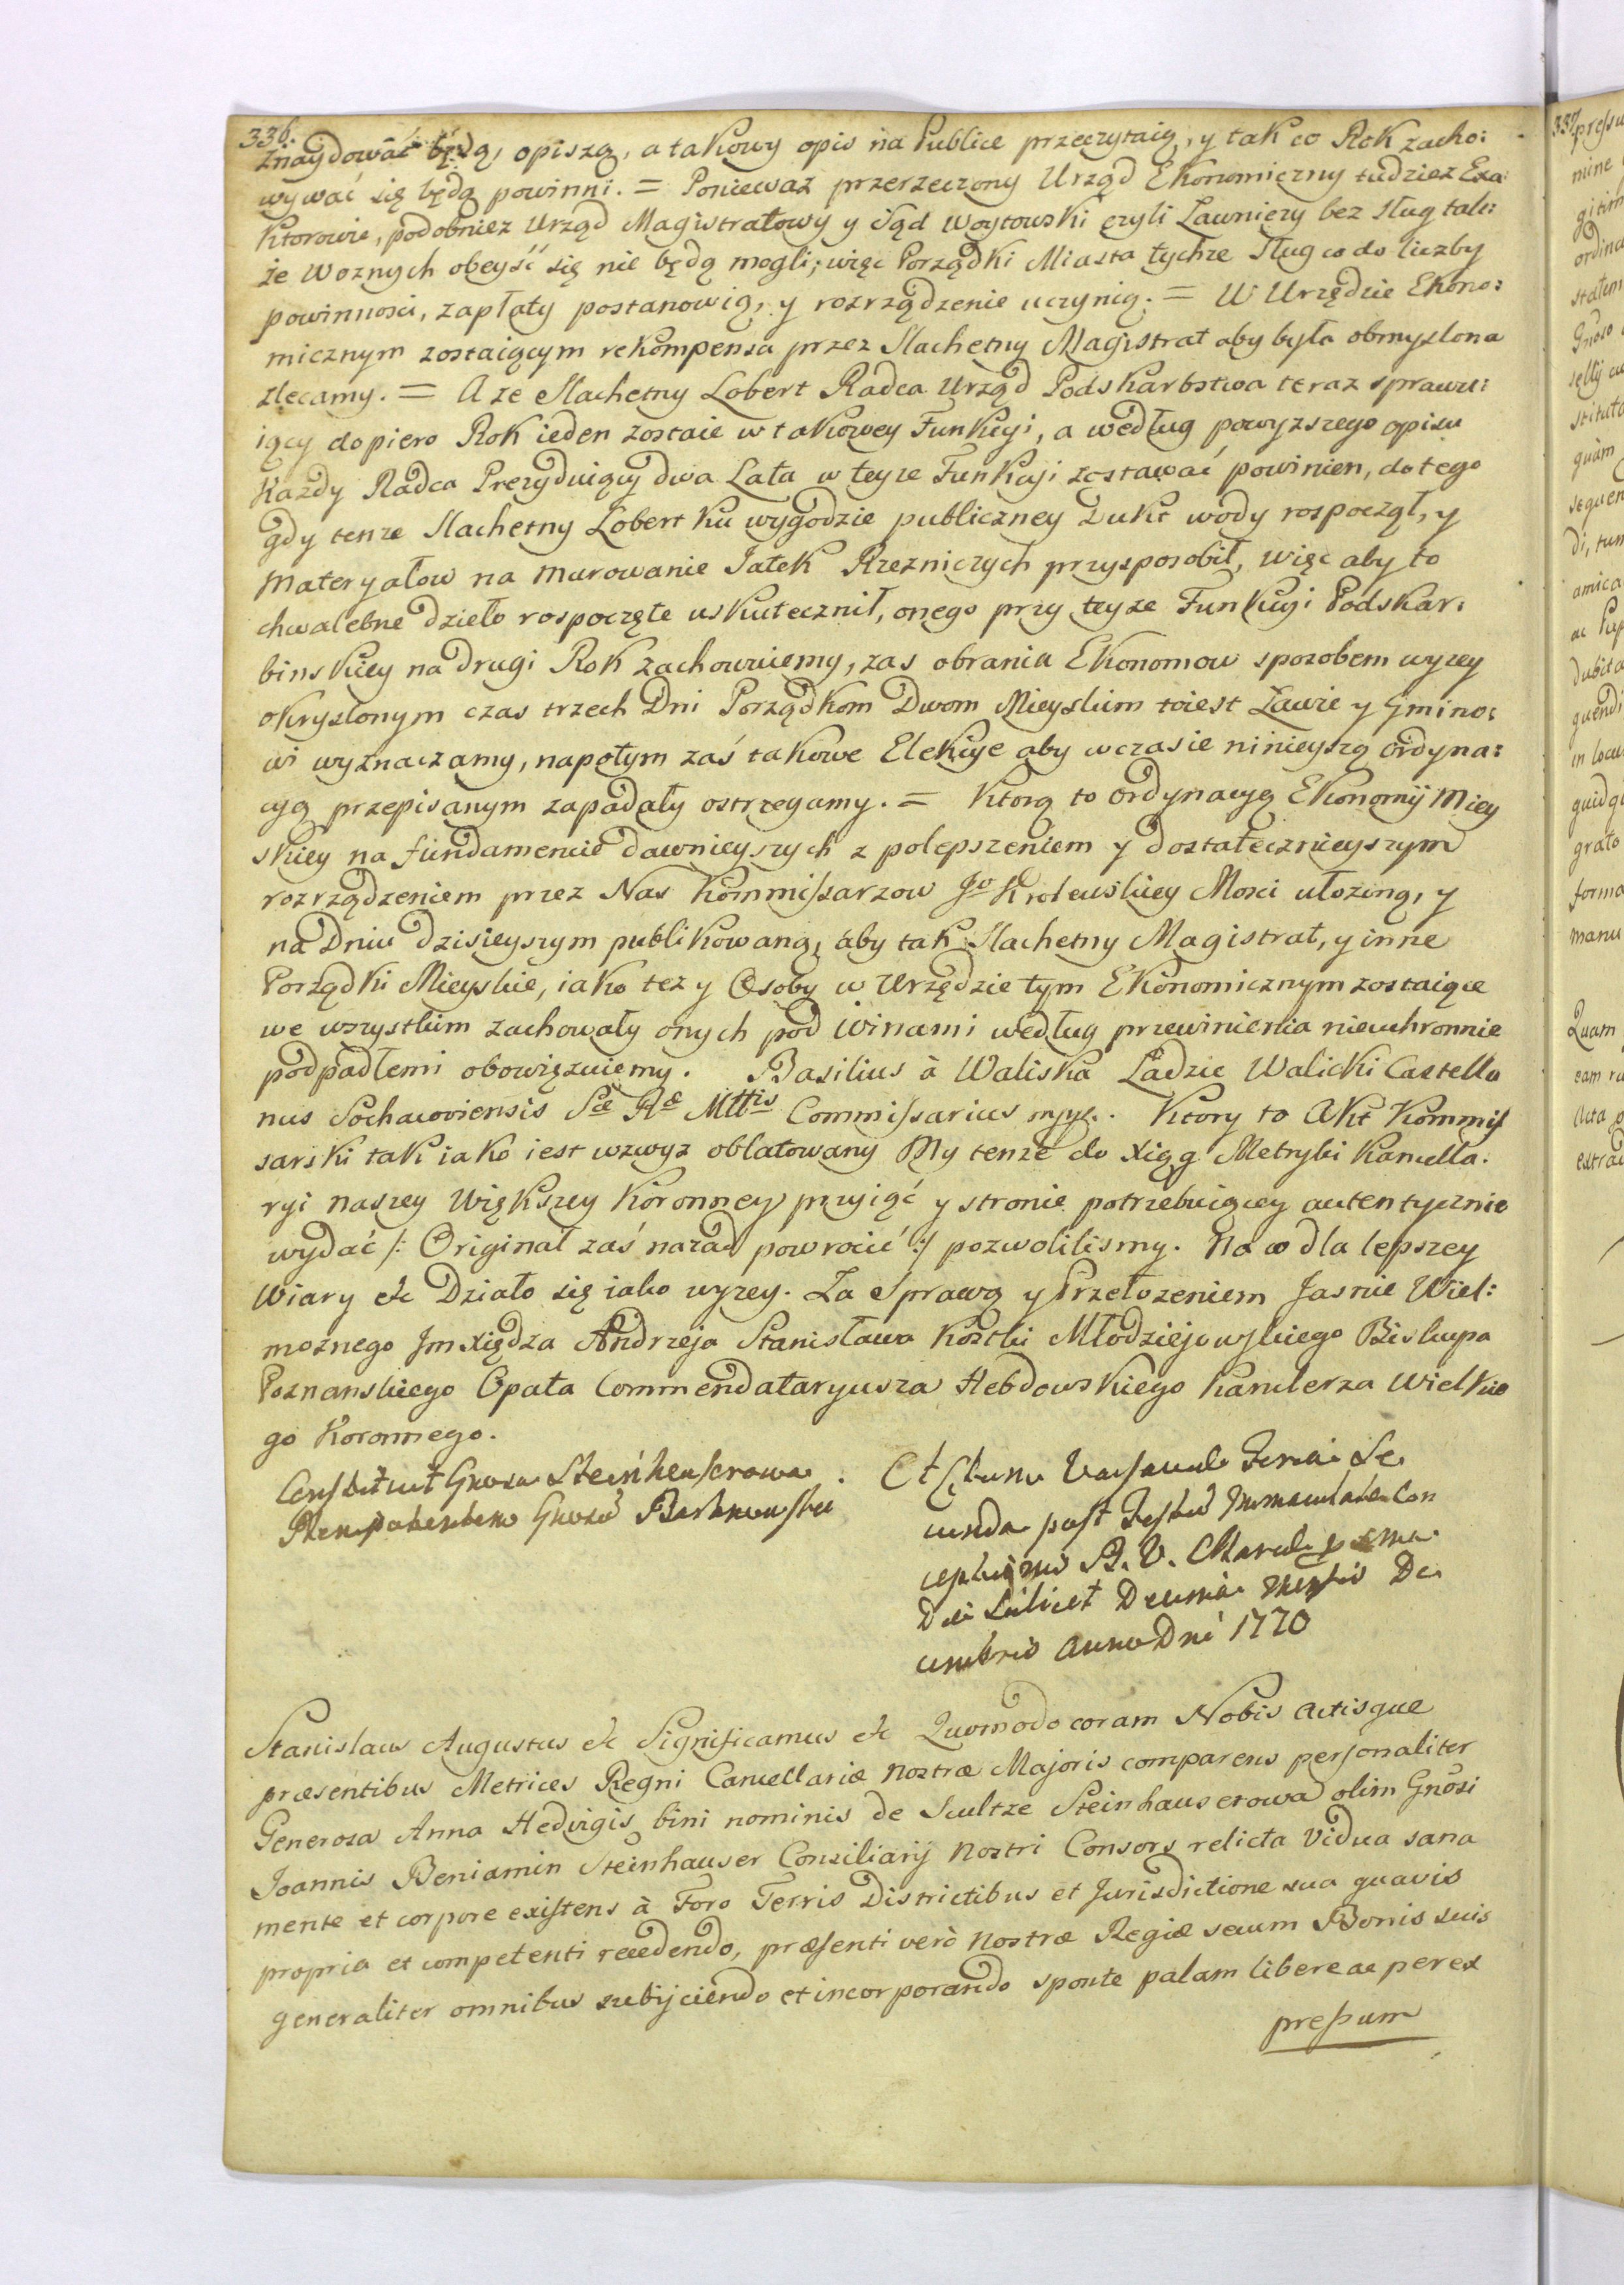 336.
znaydować będą, opiszą, a takowy opis na Publice przeczytaią, y tak co Rok zacho:
wywać się będą powinni. = Poniewaz przerzeczony Urząd Ekonomiczny tudziez Exa
ktorowie, podobniez Urząd Magistratowy y Sąd Woytowski czyli Ławniczy bez sług tak:
że Woznych obeyść się nie będą mogli; więc Porządki Miasta tychze Sług co do liczby
powinnosci, zapłaty postanowią, y rozrządzenie uczynią. = W Urzędzie Ekono:
micznym zostaiącym rekompensa przez Slachetny Magistrat aby była obmyslona
zlecamy. = A ze Slachetny Lobert Radca Urząd Podskarbstwa teraz sprawu:
iący dopiero Rok ieden zostaie w takowey Funkcyi, a według powyzszego opisu
Kazdy Radca Prezyduiący dwa Lata w teyze Funkcyi zostawać powinien, do tego
gdy tenze Slachetny Lobert ku wygodzie publiczney Dukt wody rospoczął, y
Materyałow na murowanie Jatek Rzezniczych przysposobił, więc aby to
chwalebne dzieło rospoczęte uskutecznił, onego przy teyze Funkcyi Podskar:
binskiey na drugi Rok zachowuiemy, zas obrania Ekonomow sposobem wyzey
okryslonym czas trzech Dni Porządkom Dwom Mieyskim toiest Ławie y Gmino:
wi wyznaczamy, napotym zaś takowe Elekcye aby w czasie ninieyszą ordyna:
cyą przepisanym zapadały ostrzegamy. = Ktorą to Ordynacyą Ekonomij Miey
skiey na fundamencie dawnieyszych z polepszeniem y dostatecznieyszym
rozrządzeniem przez Nas Kommissarzow Jo Krolewskiey Mosci ułozoną, y
na Dniu dzisieyszym publikowaną, aby tak Slachetny Magistrat, y inne
Porządki Mieyskie, iako tez y Osoby w Urzędzie tym Ekonomicznym zostaiące
we wszystkim zachowały onych pod winami według przewinienia nieuchronnie
podpadłemi obowięzuiemy. Basilius à Waliska Ladzie Walicki Castella
nus Sochacoviensis Sæ Ræ Mttis Commissarius mpp. Ktory to Akt Kommis
sarski tak iako iest wzwyz oblatowany My tenze do Xiąg Metryki Kancella:
ryi naszey Większey Koronney przyiąć y stronie potrzebuiącey autentycznie
wydać /: Originał zaś nazad powrocić :/ pozwolilismy. Na co dla lepszey
Wiary etc Działo się iako wyzey. Za Sprawą y Przełozeniem Jasnie Wiel:
moznego Jmxiędza Andrzeja Stanisława Kostki Młodziejowskiego Biskupa
Poznanskiego Opata Commendataryusza Hebdowskiego Kanclerza Wielkie
go Koronnego.
Constituit Gnosa Steinhauserowa
Plenipotentem Gnosū
Actum Varsaviæ Feria Se
cunda post Festū Immaculatæ Con
ceptionis B. V. Mariæ
Die scilicet Decima Mensis De
cembris Anno Dni 1770
Stanislaus Augustus etc Significamus etc Quomodo coram Nobis Actisque
præsentibus Metrices Regni Cancellariæ nostræ Majoris comparens personaliter
Generosa Anna Hedvigis bini nominis de Scultze Steinhauserowa olim Gnōsi
Joannis Beniamin Steinhauser Consiliarij Nostri Consors relicta Vidua sana
mente et corpore existens à Foro Terris Districtibus et Jurisdictione sua quavis
propria et competenti recedendo, præsenti verò Nostræ Regiæ secum Bonis suis
generaliter omnibus subijciendo et incorporando sponte palam libere ac per ex
pressum